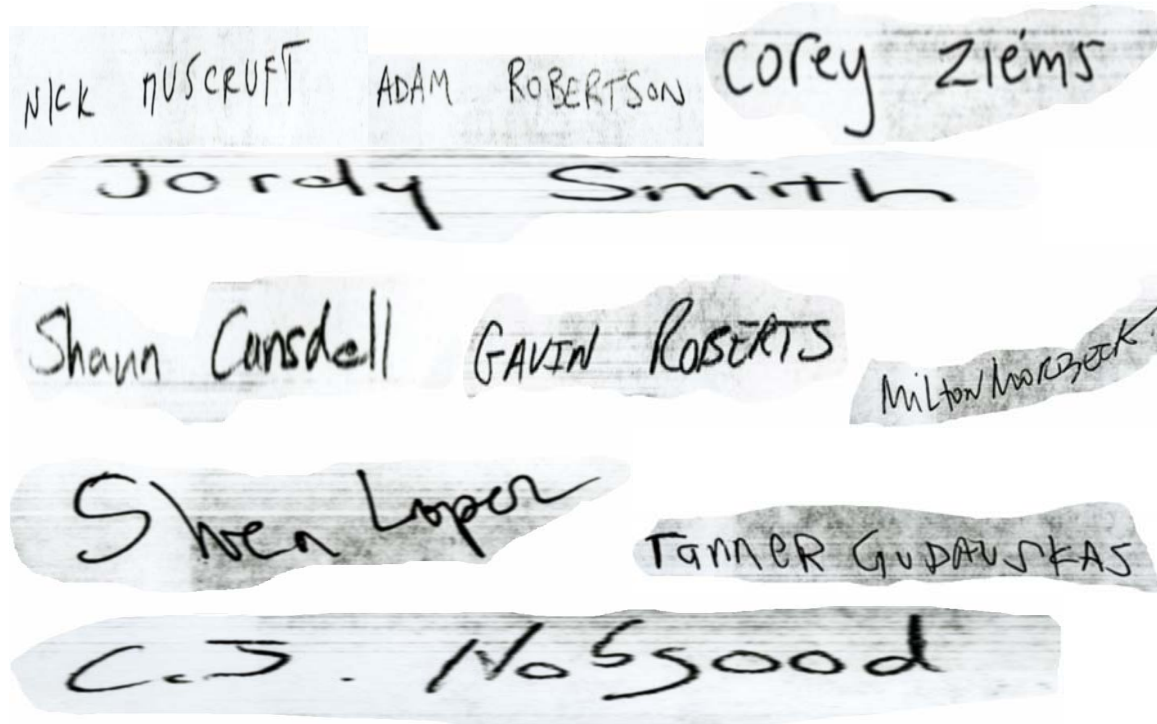 NICK MUSCRUFT ADAM ROBERTSON Corey Ziems
Jordy Smith
Shaun Cansdell GAVIN ROBERTS MILTON MORBECK
Shren Loper
TANNER GUDAUSKAS
C.J. Nobsgood